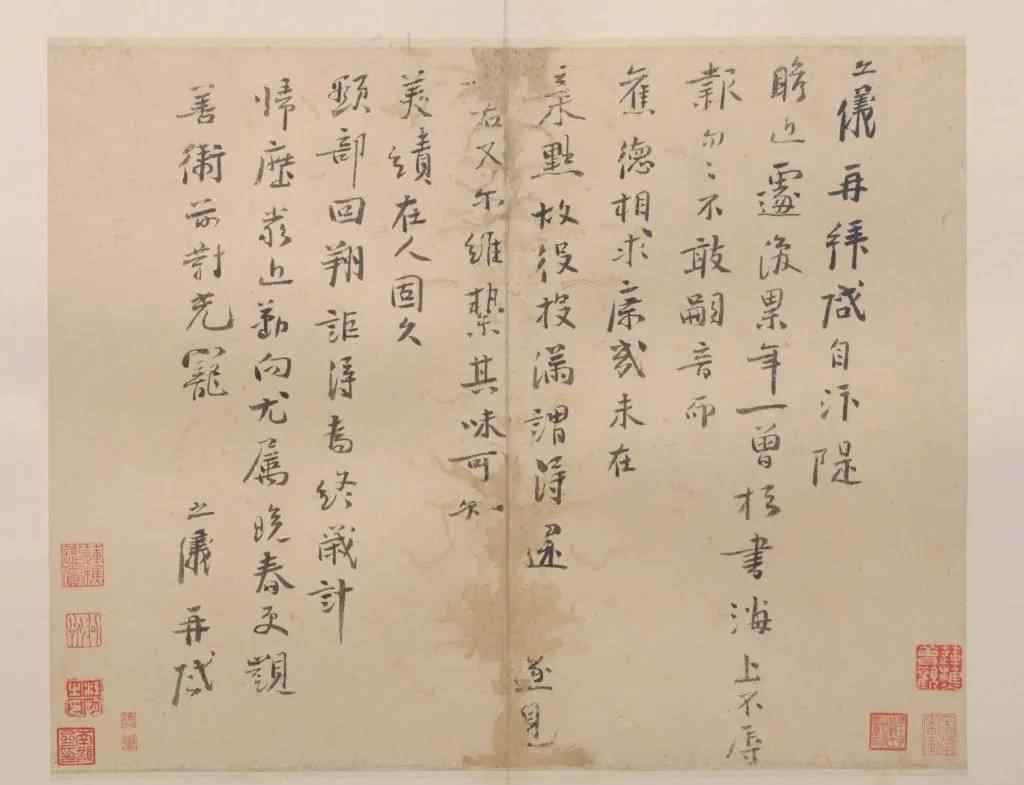 之儀再拜啟自汴隄
瞻近遽後累年一曾於書海上不辱
報勿勿不敢嗣音而
舊德相求或未在
棄點故役投滿謂得還遂見
右又尔維縶其味可知
美績在人固久
顯部回翔詎得為終歲計
歸歷近勤向尤屬晚春更覬
善衛前對光寵之儀再啟